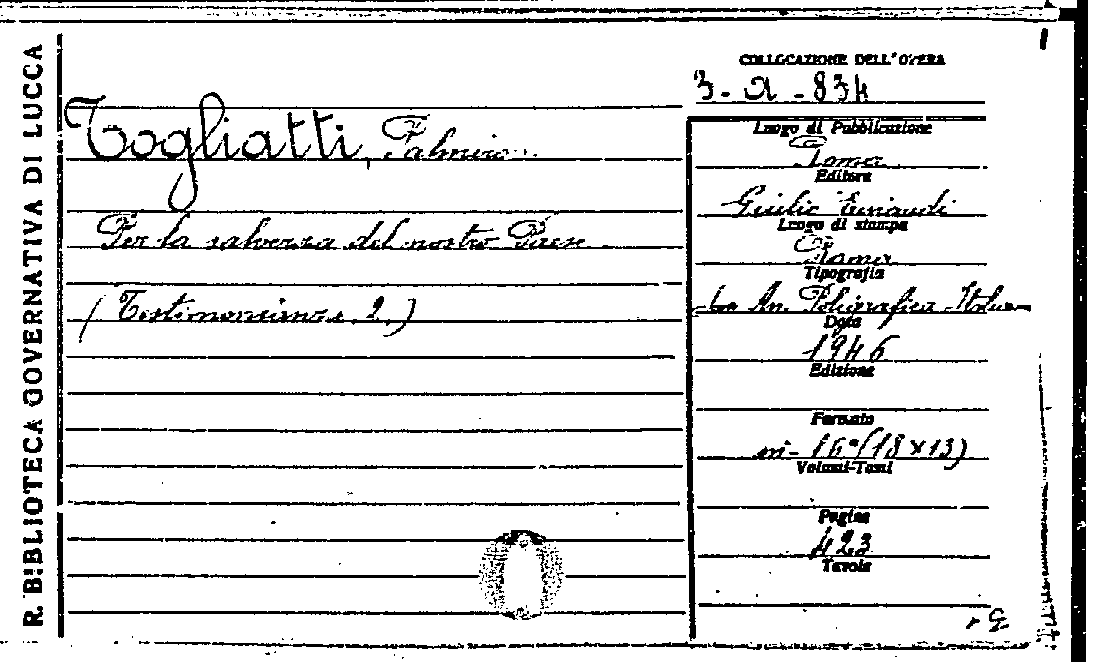 R. BIBLIOTECA GOVERNATIVA DI LUCCA
COLLOCAZIONE DELL'OPERA
3-A-834
Togliatti, Palmiro
Per la salvezza del nostro Paese
(Testimonianze, 2.)
Luogo di Pubblicazione
Roma
Editore
Giulio Einaudi
Luogo di stampa
Roma
Tipografia
An. Poligrafica Italiana
Data
1946
Edizione
Formato
in-16°(18x13)
Volumi-Tomi
Pagine
423
Tavole